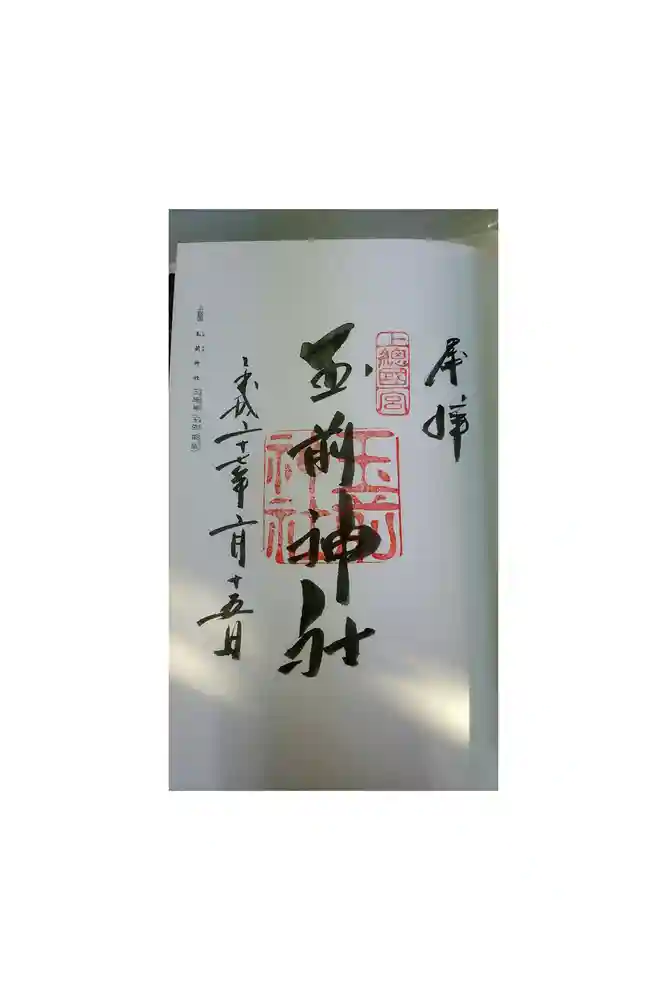 奉拝
上總國一宮
玉前神社
玉前神社
平成二十七年二月十五日
玉前神社